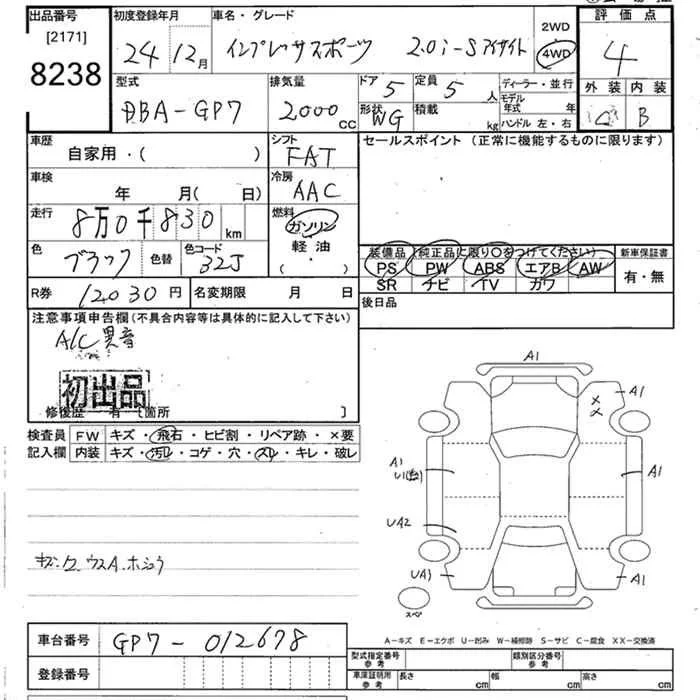 出品番号 初度登録年月 車名・グレード 2WD 評価点
[2171] 24 12月 インプレッサスポーツ 2.0i-Sアイサイト 4WD 4
8238 型式 排気量 ドア 5 定員 5人 ディーラー・並行 外装 内装
DBA-GP7 2000cc 形状 WG 積載 kg モデル年式 年 B
ハンドル 左・右
車歴 シフト セールスポイント (正常に機能するものに限ります)
自家用・( ) FAT
車検 冷房
年 月( 日) AAC
走行 燃料
8万0千830km ガソリン
色 色替 色コード 軽油 装備品 (純正品に限り○をつけてください) 新車保証書
ブラック 32J ( ・ ) PS PW ABS エアB AW 有・無
R券 12030円 名変期限 月 日 SR ナビ TV カワ
注意事項申告欄(不具合内容等は具体的に記入して下さい) 後日品
A/C異音
初出品
修復歴 有 [箇所 ]
検査員 FW キズ・飛石・ヒビ割・リペア跡・×要
記入欄 内装 キズ・汚レ・コゲ・穴・スレ・キレ・破レ
A1
A1
A1
A1
UA2
UA1
A1
スペア
A-キズ E-エクボ U-凹み W-補修跡 S-サビ C-腐食 XX-交換済
車台番号 GP7-012678
型式指定番号 参考 類別区分番号 参考
登録番号 車庫証明用 参考 長さ cm 幅 cm 高さ cm